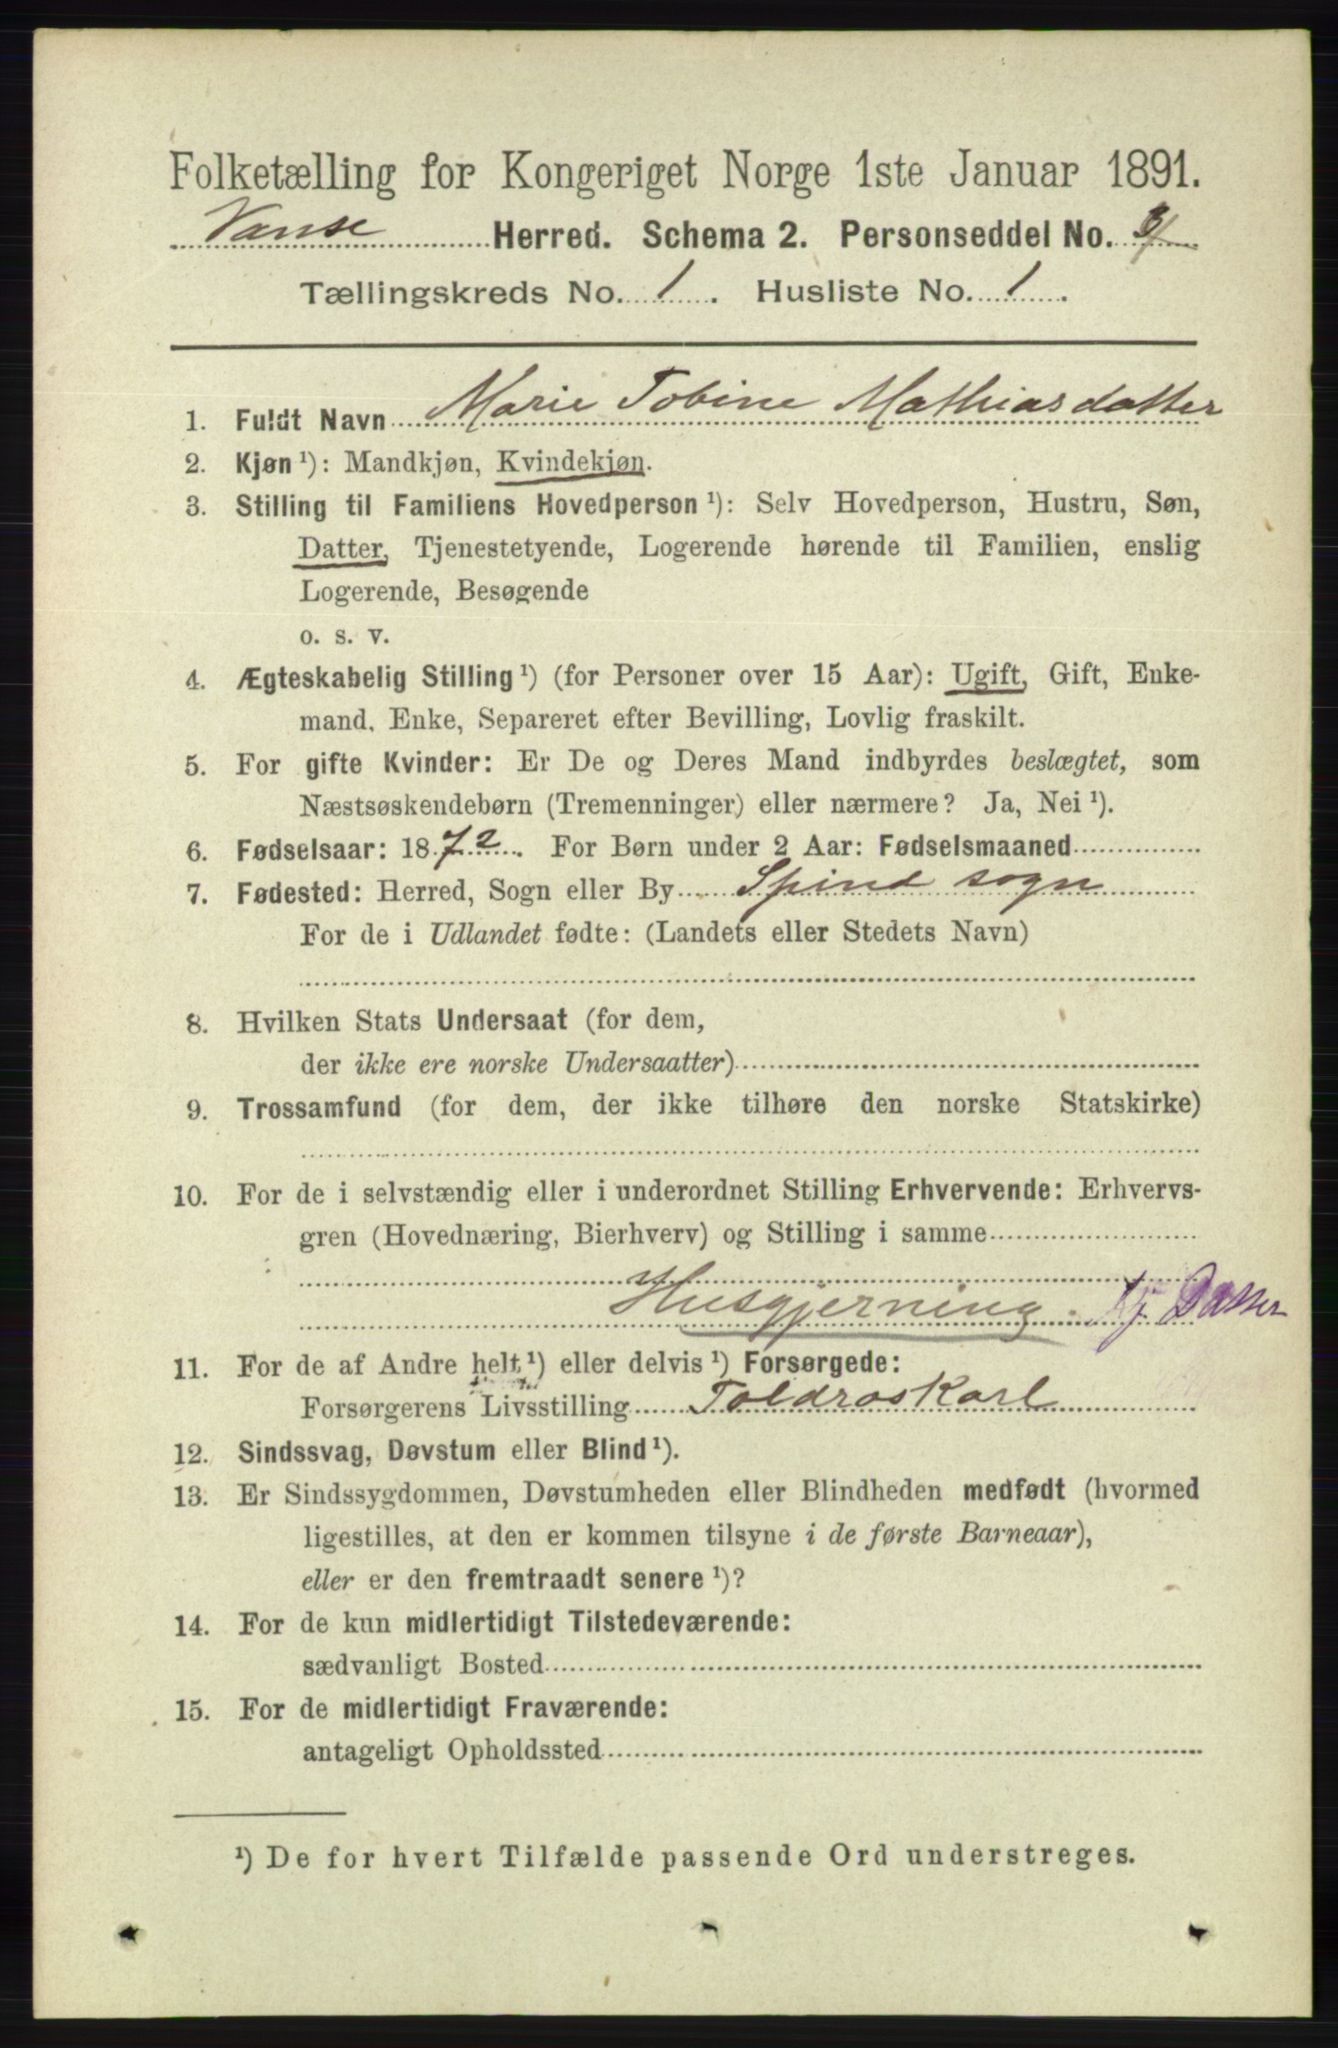 Folketælling for Kongeriget Norge 1ste Januar 1891.
Vanse Herred. Schema 2. Personseddel No. 3
Tællingskreds No. 1. Husliste No. 1.
1. Fuldt Navn Marie Tobine Mathiasdatter
2. Kjøn ¹): Mandkjøn, Kvindekjøn.
3. Stilling til Familiens Hovedperson ¹): Selv Hovedperson, Hustru, Søn,
Datter, Tjenestetyende, Logerende hørende til Familien, enslig
Logerende, Besøgende
o. s. v.
4. Ægteskabelig Stilling ¹) (for Personer over 15 Aar): Ugift, Gift, Enke-
mand, Enke, Separeret efter Bevilling, Lovlig fraskilt.
5. For gifte Kvinder: Er De og Deres Mand indbyrdes beslægtet, som
Næstsøskendebørn (Tremenninger) eller nærmere? Ja, Nei ¹).
6. Fødselsaar: 1872. For Børn under 2 Aar: Fødselsmaaned
7. Fødested: Herred, Sogn eller By Spind sogn
For de i Udlandet fødte: (Landets eller Stedets Navn)
8. Hvilken Stats Undersaat (for dem,
der ikke ere norske Undersaatter)
9. Trossamfund (for dem, der ikke tilhøre den norske Statskirke)
10. For de i selvstændig eller i underordnet Stilling Erhvervende: Erhvervs-
gren (Hovednæring, Bierhverv) og Stilling i samme
Husgjerning. Datter
11. For de af Andre helt ¹) eller delvis ¹) Forsørgede:
Forsørgerens Livsstilling Toldroskarl
12. Sindssvag, Døvstum eller Blind ¹).
13. Er Sindssygdommen, Døvstumheden eller Blindheden medfødt (hvormed
ligestilles, at den er kommen tilsyne i de første Barneaar),
eller er den fremtraadt senere ¹)?
14. For de kun midlertidigt Tilstedeværende:
sædvanligt Bosted
15. For de midlertidigt Fraværende:
antageligt Opholdssted
¹) De for hvert Tilfælde passende Ord understreges.